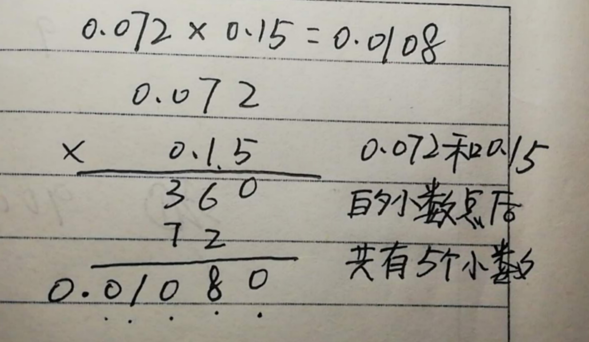 0.072 × 0.15 = 0.0108
0.072
× 0.15
0.072和0.15
360
的小数点后
72
共有5个小数
0.01080